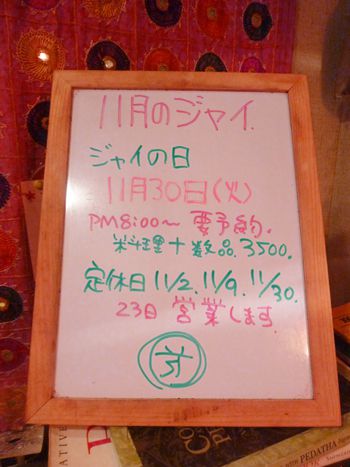 11月のジャイ.
ジャイの日
11月30日(火)
PM8:00〜 要予約.
料理十数品.3500.
定休日 11/2. 11/9. 11/30.
23日 営業します
PEDATHA